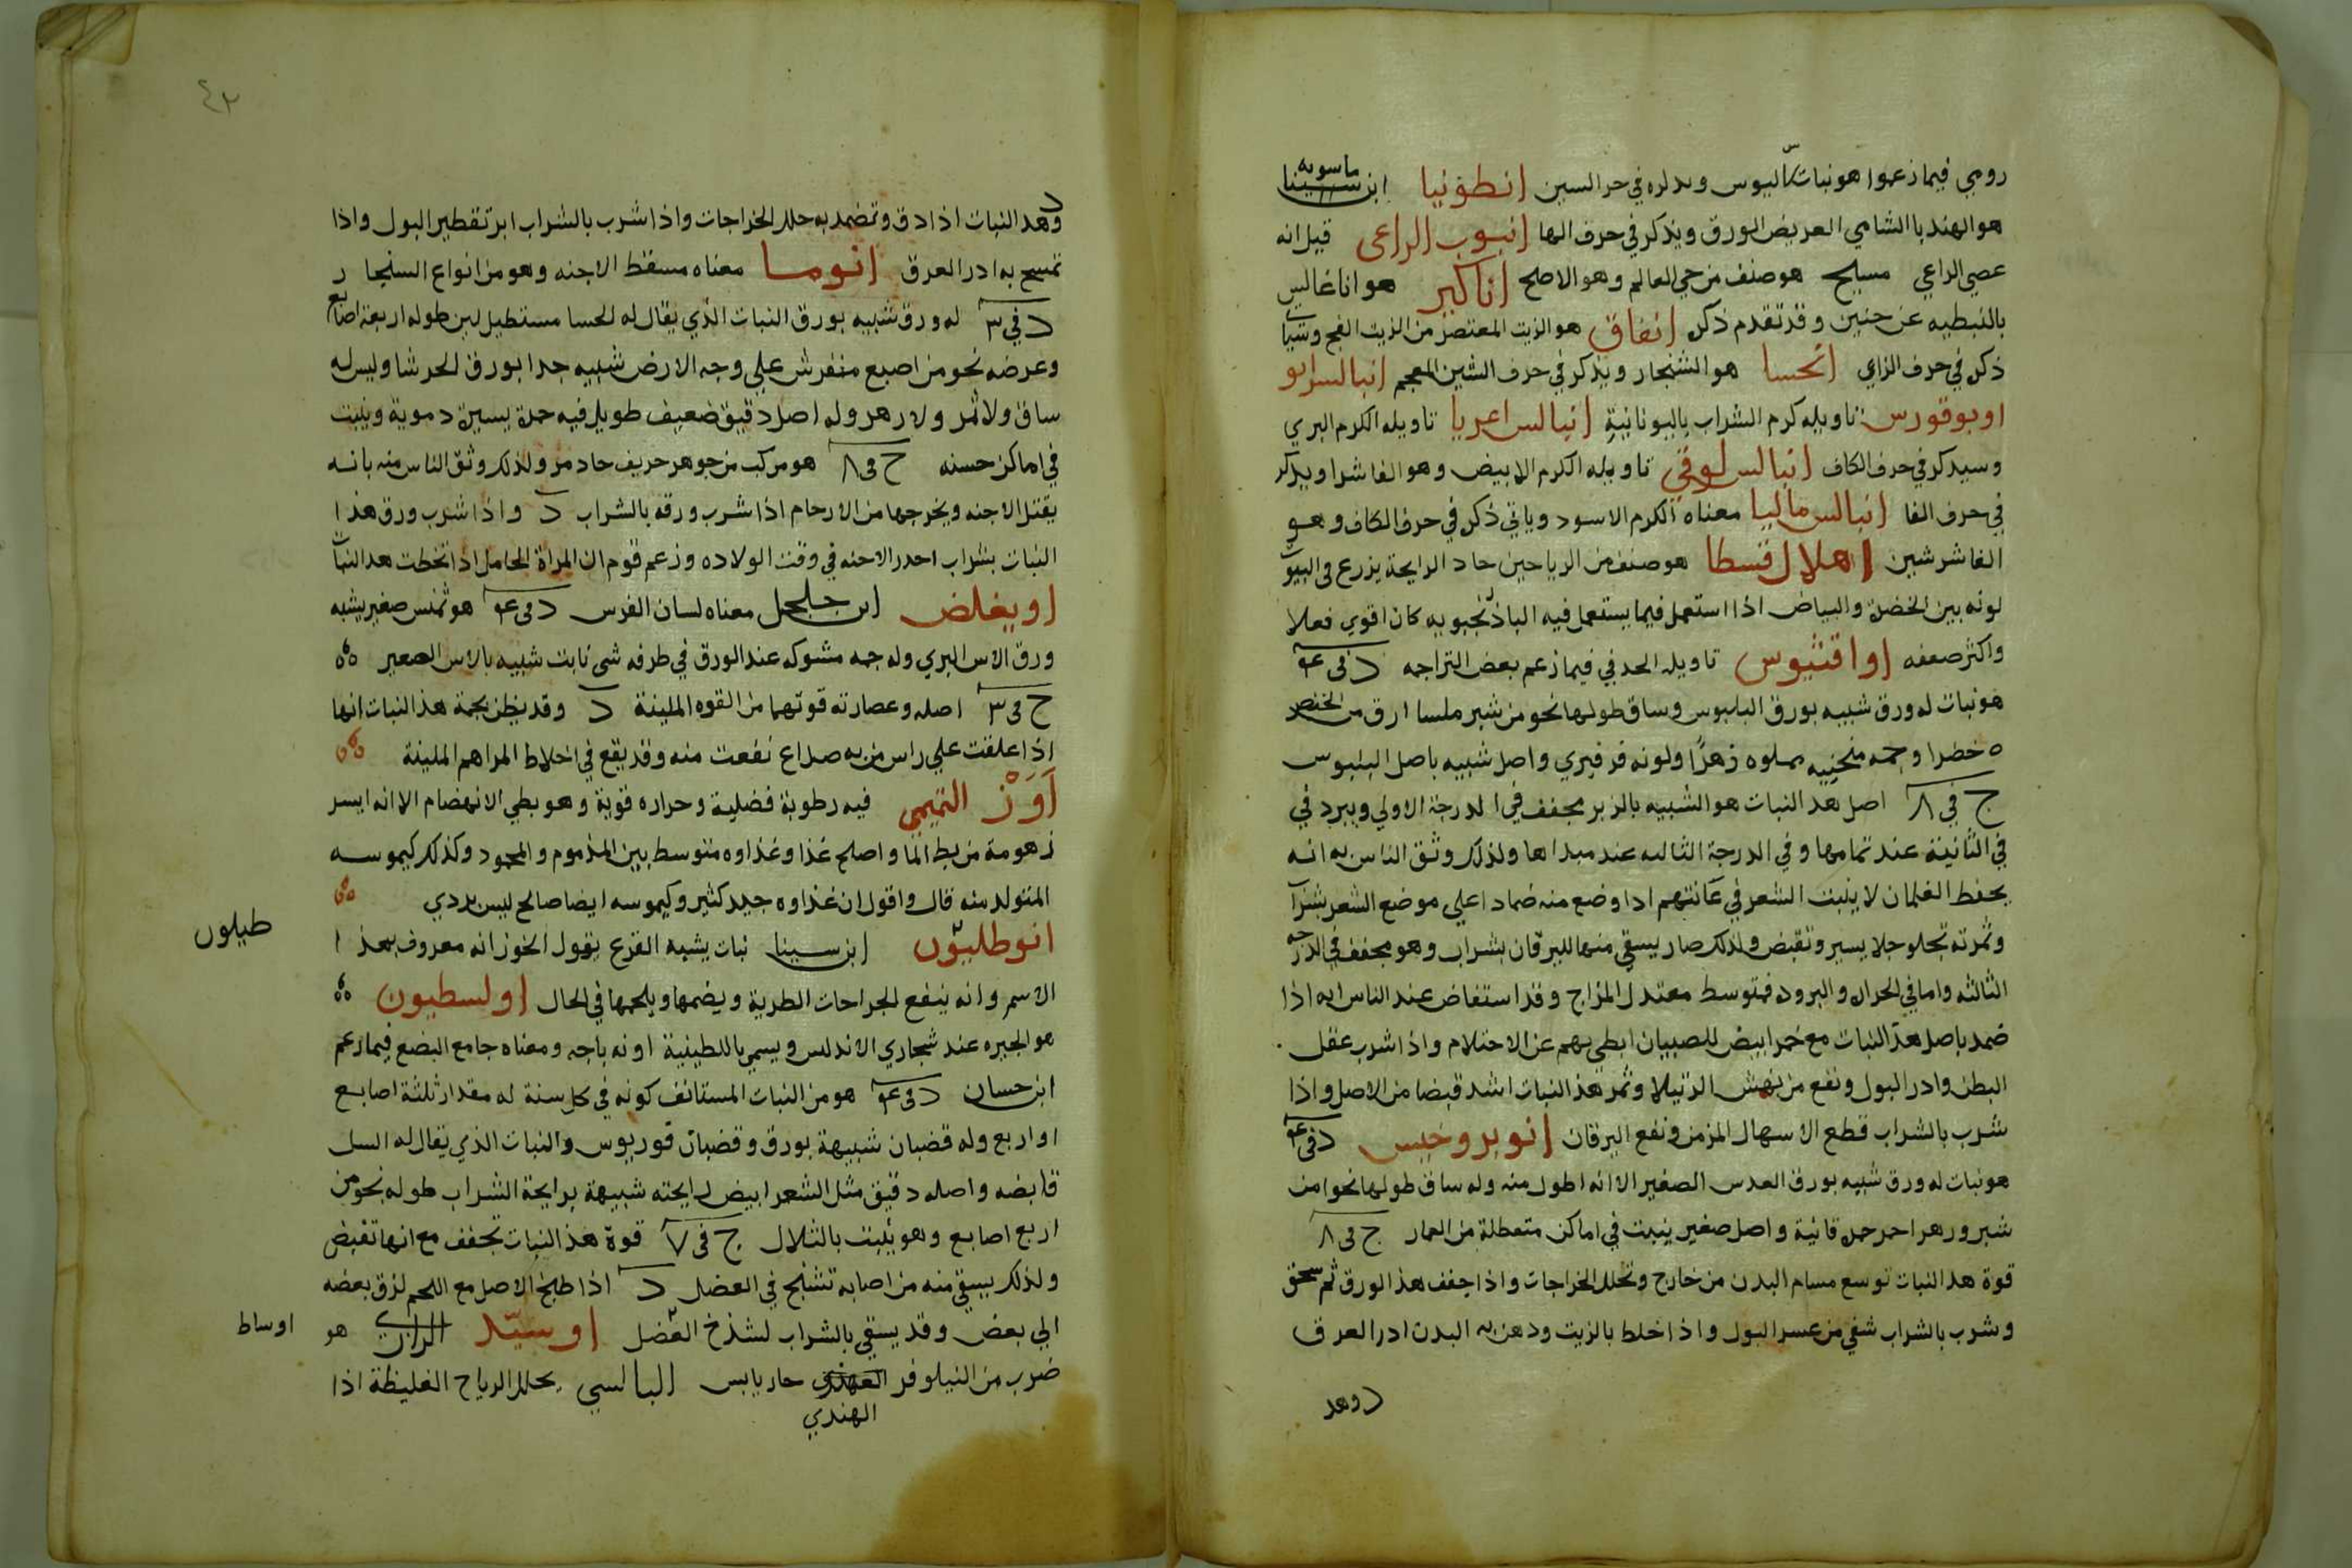 رومي فيما زعموا هو نبات اليوس وىدكره في حر السين انطونيا ابن سينا ماسويه
هو الهندبا الشامي العريض الورق ويذكر في حرف الها انبوب الراعى قيل انه
عصي الراعي مسيح هو صنف من حي العالم وهو الاصلح اناكير هو اناغالس
بالنبطيه عن حنين وقد تقدم ذكره انفاق هو الزيت المعتصر من الزيت الفج وسيا
ذكره في حرف الزاي انحسا هو الشنجار ويذكر في حرف الشين المعجم انبالسرابو
اوبوقورس تاويله كرم الشراب باليونانية انبالس اعربا تاويله الكرم البري
وسيدكر في حرف الكاف انبالس لوقي تاويله الكرم الابيض وهو الفاشرا ويدكر
في حرف الفا انبالس ماليا معناه الكرم الاسود وياتي ذكره في حرف الكاف وهو
الفاشرشين اهلال قسطا هو صنف من الرياحين حاد الرايحة يزرع فى البيو
لونه بين الخضرة والبياض اذا استعمل فيما يستعمل فيه الباذنجبويه كان اقوي فعلا
واكثر صعفه اواقنثيوس تاويله الحدفي فيما زعم بعض التراجمه د فى ع
هو نبات له ورق شبيه بورق البلبوس وساق طولها نحو من شبر ملسا ارق من الخنصر
ه خضرا وجمه منحنيه مملوه زهرًا ولونه فرفيري واصل شبيه باصل البلبوس
ج في ٨ اصل هذا النبات هو الشبيه بالزير مجفف في الدرجة الاولي ويبرد في
في الثانية عند تمامها وفي الدرجة الثالثه عند مبداها ولذلك وثق الناس به انه
يحفظ الغلمان لا ينبت الشعر في عانتهم اذا وضع منه ضمادا علي موضع الشعر بشرا
وثمرته تجلو جلا يسير وتقبض ولذلك صار يسقي منها لليرقان بشراب وهو مجفف في الدرجه
الثالثه واما في الحراره والبروده فمتوسط معتدل المزاج وقد استفاض عند الناس انه اذا
ضمد باصل هذا النبات مع خمر ابيض للصبيان ابطي بهم عن الاحتلام واذا شرب عقل
البطن وادر البول ونفع من نهش الرتيلا وثمر هذا النبات اشد قبضا من الاصل واذا
شرب بالشراب قطع الاسهال المزمن ونفع اليرقان انوبروخيس د فى ع
هو نبات له ورق شبيه بورق العدس الصغير الا انه اطول منه وله ساق طولها نحوا من
شبر وزهر احمر حمره قانية واصل صغير ينبت في اماكن متعطلة من العمار ج فى ٨
قوة هذا النبات توسع مسام البدن من خارج وتحلل الخراجات واذا جفف هذا الورق ثم سحق
وشرب بالشراب شفي من عسر البول واذا خلط بالزيت ودهن به البدن ادر العرق
د وهد
٤٢
د وهذا النبات اذا دق وتضمد به حلل الخراجات واذا شرب بالشراب ابر تقطير البول واذا
تمسح به ادر العرق انوما معناه مسقط الاجنه وهو من انواع السنجار
د في ٣ له ورق شبيه بورق النبات الذي يقال له الحسا مستطيل لين طوله اربعة اصابع
وعرضه نحو من اصبع منفرش علي وجه الارض شبيه جدا بورق الحرشا وليس له
ساق ولا ثمر ولا زهر وله اصل دقيق ضعيف طويل فيه حمرة يسيرة دموية وينبت
في اماكن حسنه ج فى ٨ هو مركب من جوهر حريف حاد مر ولذلك وثق الناس منه بانه
يقتل الاجنه ويخرجها من الارحام اذا شرب ورقه بالشراب د واذا شرب ورق هذا
النبات بشراب احدر الاجنه في وقت الولاده وزعم قوم ان المراة الحامل اذا تخطت هذا النبات
اويغلض ابن جلجل معناه لسان الفرس د فى ع هو ثمنس صغير يشبه
ورق الاس البري وله جمه مشوكه عند الورق في طرفه شى نابت شبيه بالاس الصغير
ج فى ٣ اصله وعصارته قوتهما من القوه الملينة د وقد يظن بجمة هذا النبات انها
اذا علقت علي راس من به صداع نفعت منه وقد يقع في اخلاط المراهم الملينة
آوَزْ التميمي فيه رطوبة فضلية وحراره قوية وهو بطي الانهضام الا انه ايسر
زهومة من بط الما واصلح غذا وغذاوه متوسط بين المذموم والمحمود وكذلك كيموسه
المتولد منه قال واقول ان غذاوه جيد كثير وكيموسه ايضا صالح ليس بردي
انوطليون ابن سينا نبات يشبه القرع يقول الخوز انه معروف بهذا
طيلون
الاسم وانه ينفع الجراحات الطرية ويضمها ويلحمها في الحال اولسطيون
هو الجبره عند شجاري الاندلس ويسمي باللطينية اونه باجه ومعناه جامع البضع فيما زعم
ابن حسان د فى ع هو من النبات المستانف كونه في كل سنة له مقدار ثلثة اصابع
او اربع وله قضبان شبيهة بورق وقضبان قوربوس والنبات الذي يقال له السل
قابضه واصله دقيق مثل الشعر ابيض رايحته شبيهة برايحة الشراب طوله نحو من
اربع اصابع وهو ينبت بالتلال ج فى ٧ قوة هذا النبات تجفف مع انها تقبض
ولذلك يسقي منه من اصابه تشنج في العضل د اذا طبخ الاصل مع اللحم لزق بعضه
الي بعض وقد يسقي بالشراب لشدخ العضل اوسيّد الرازي هو
اوساط
ضرب من النيلوفر الهندي حار يابس البالسي يحلل الرياح الغليظة اذا
الهندي